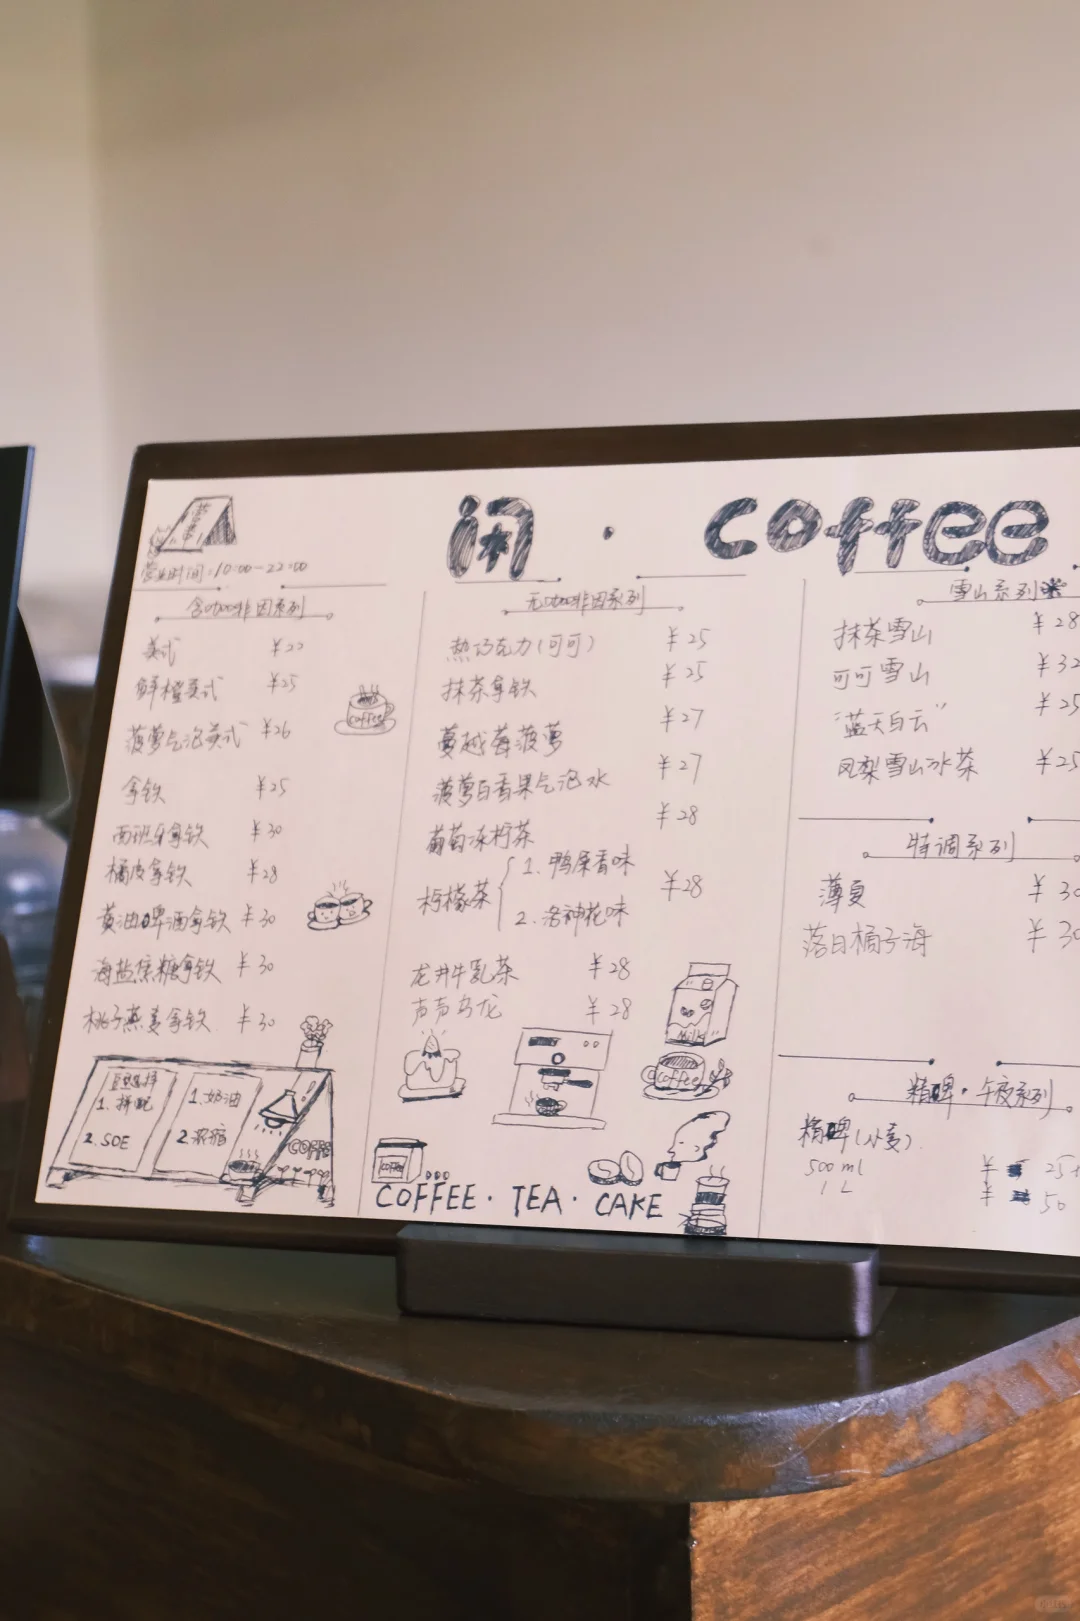 闲 · coffee
营业时间:10:00-22:00
含咖啡因系列
美式 ¥22
鲜橙美式 ¥25
菠萝气泡美式 ¥26
拿铁 ¥25
西班牙拿铁 ¥30
橘皮拿铁 ¥28
黄油啤酒拿铁 ¥30
海盐焦糖拿铁 ¥30
桃子燕麦拿铁 ¥30
coffee
豆单选择
1. 拼配
2. SOE
1. 奶油
2. 浓缩
COFFE
无咖啡因系列
热巧克力(可可) ¥25
抹茶拿铁 ¥25
蔓越莓菠萝 ¥27
菠萝百香果气泡水 ¥27
葡萄冻柠茶 ¥28
柠檬茶 ¥28
1. 鸭屎香味
2. 洛神花味
龙井牛乳茶 ¥28
芦荟乌龙 ¥28
Milk
coffee
coffee
COFFEE · TEA · CAKE
雪山系列
抹茶雪山 ¥28
可可雪山 ¥32
“蓝天白云” ¥25
凤梨雪山冰茶 ¥25
特调系列
薄夏 ¥30
落日橘子海 ¥30
精啤·午夜系列
精啤(小麦)
500ml ¥25
1L ¥50